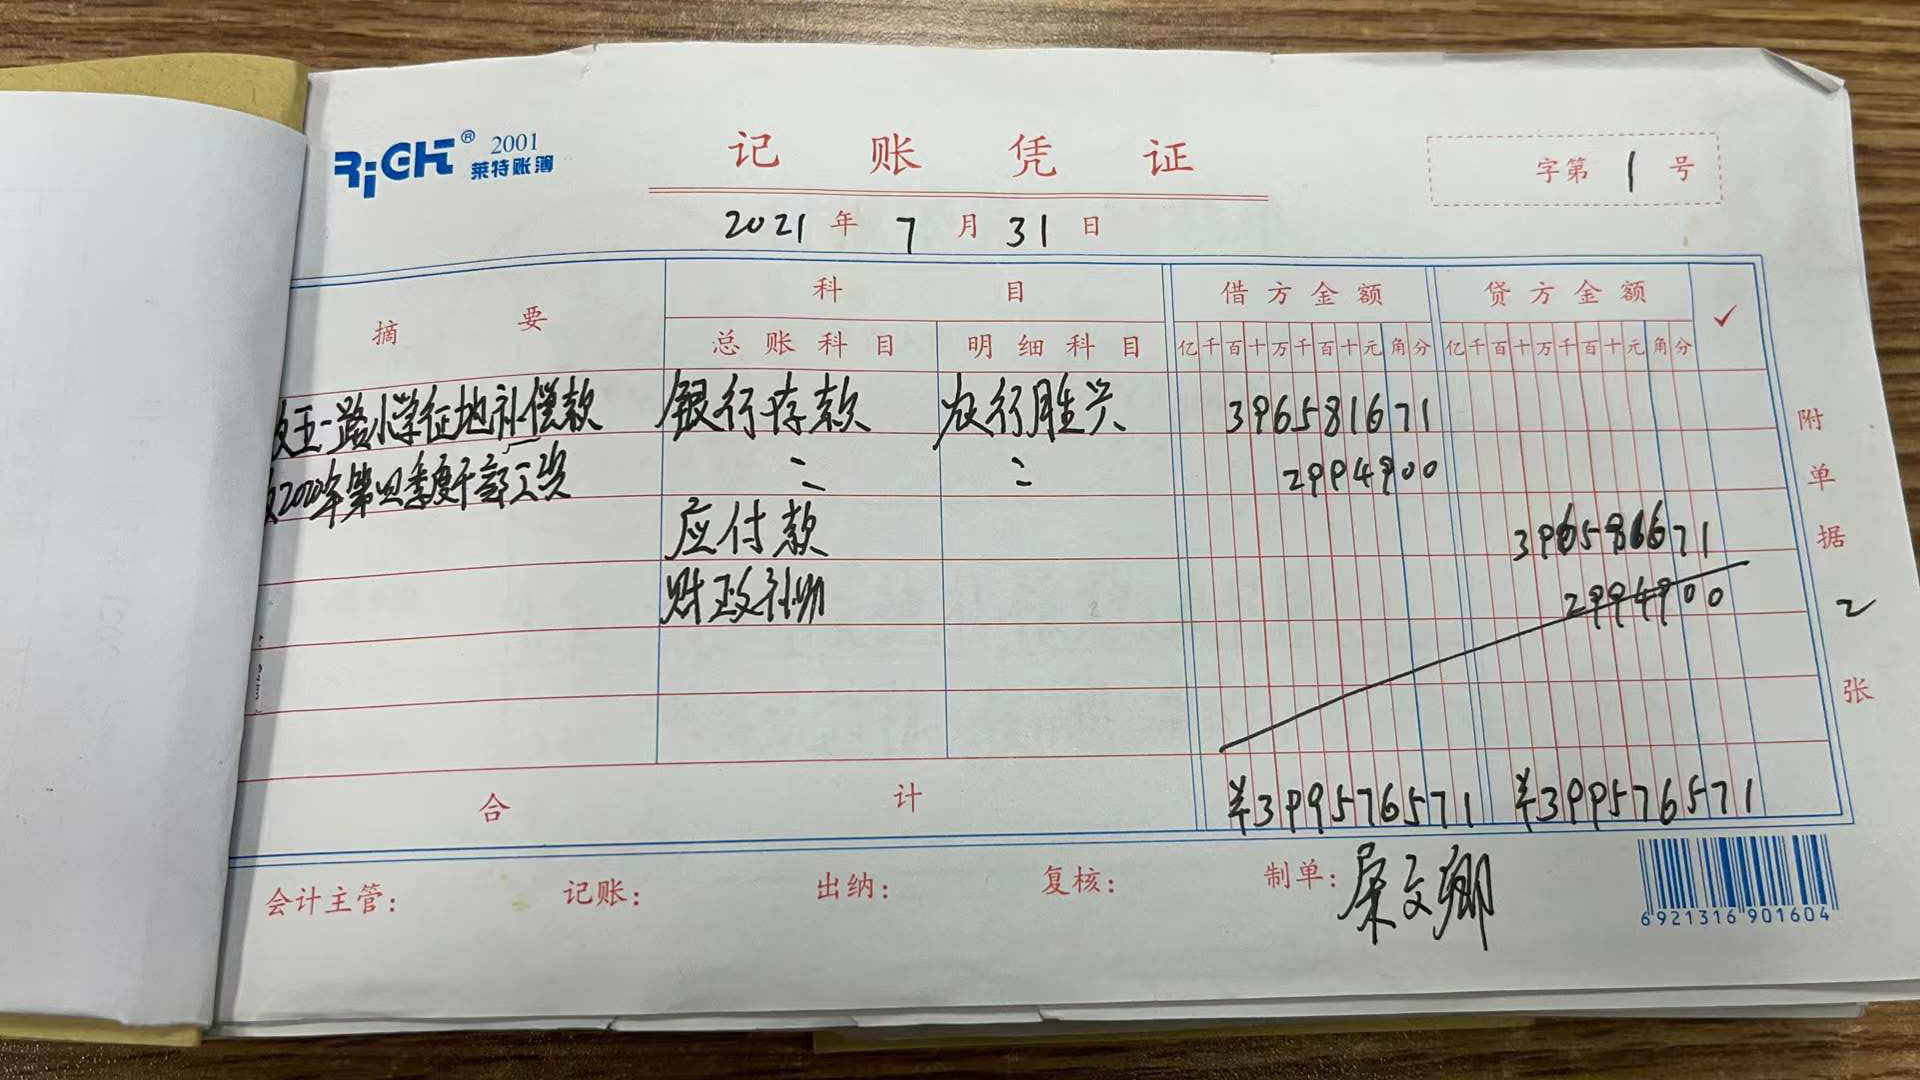 RiGHT® 2001
莱特账簿
记 账 凭 证
字第 1 号
2021 年 7 月 31 日
摘 要
科 目
借方金额
贷方金额
✓
总账科目
明细科目
亿千百十万千百十元角分
亿千百十万千百十元角分
收五一路小学征地补偿款 银行存款 农行胜兴 396581671
收2020年第四季度干部工资 〃 〃 2994900
应付款 396581671
财政补助 2994900
合 计 ¥399576571 ¥399576571
附单据 2 张
会计主管: 记账: 出纳: 复核: 制单: 屈文卿
6 921316 901604